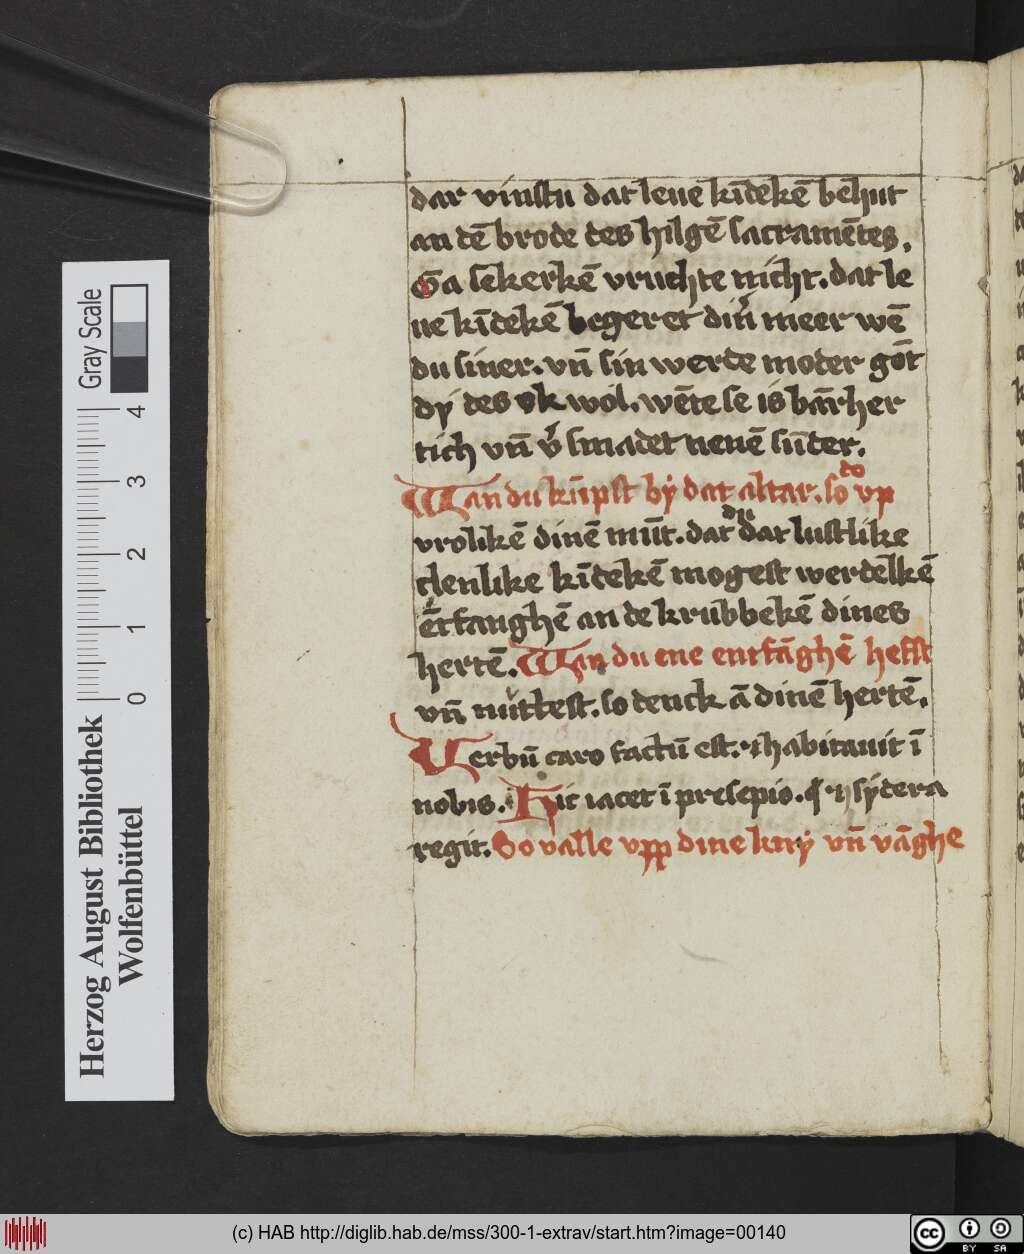 dar vinstu dat leue kīdekē behut
an dē brode des hilgē sacramētes.
Ga sekerkē vruchte nicht. dat le
ue kīdekē begeret din meer wē
du siner. vn̄ sin werde moder gōt
dÿ des ok wol. wēte se is bārher
tich vn̄ v̄ smadet nenē sūder.
Wan du kūpst bÿ dat altar. so do vp
vrolikē dinē mūt. dat du dat lustlike
clenlike kīdekē mogest werdelkē
ētfanghē an de krubbekē dines
hertē. Wan du ene entfāghē hefst
vn̄ nuttest. so denck ā dinē hertē.
Verbū caro factū est. ⁊ habitauit ī
nobis. Hic iacet ī presepio. ⁊ sÿdera
regit. So valle vpp dine knÿ vn̄ vāghe
Herzog August Bibliothek
Wolfenbüttel
0 1 2 3 4
Gray Scale
(c) HAB http://diglib.hab.de/mss/300-1-extrav/start.htm?image=00140
cc BY SA